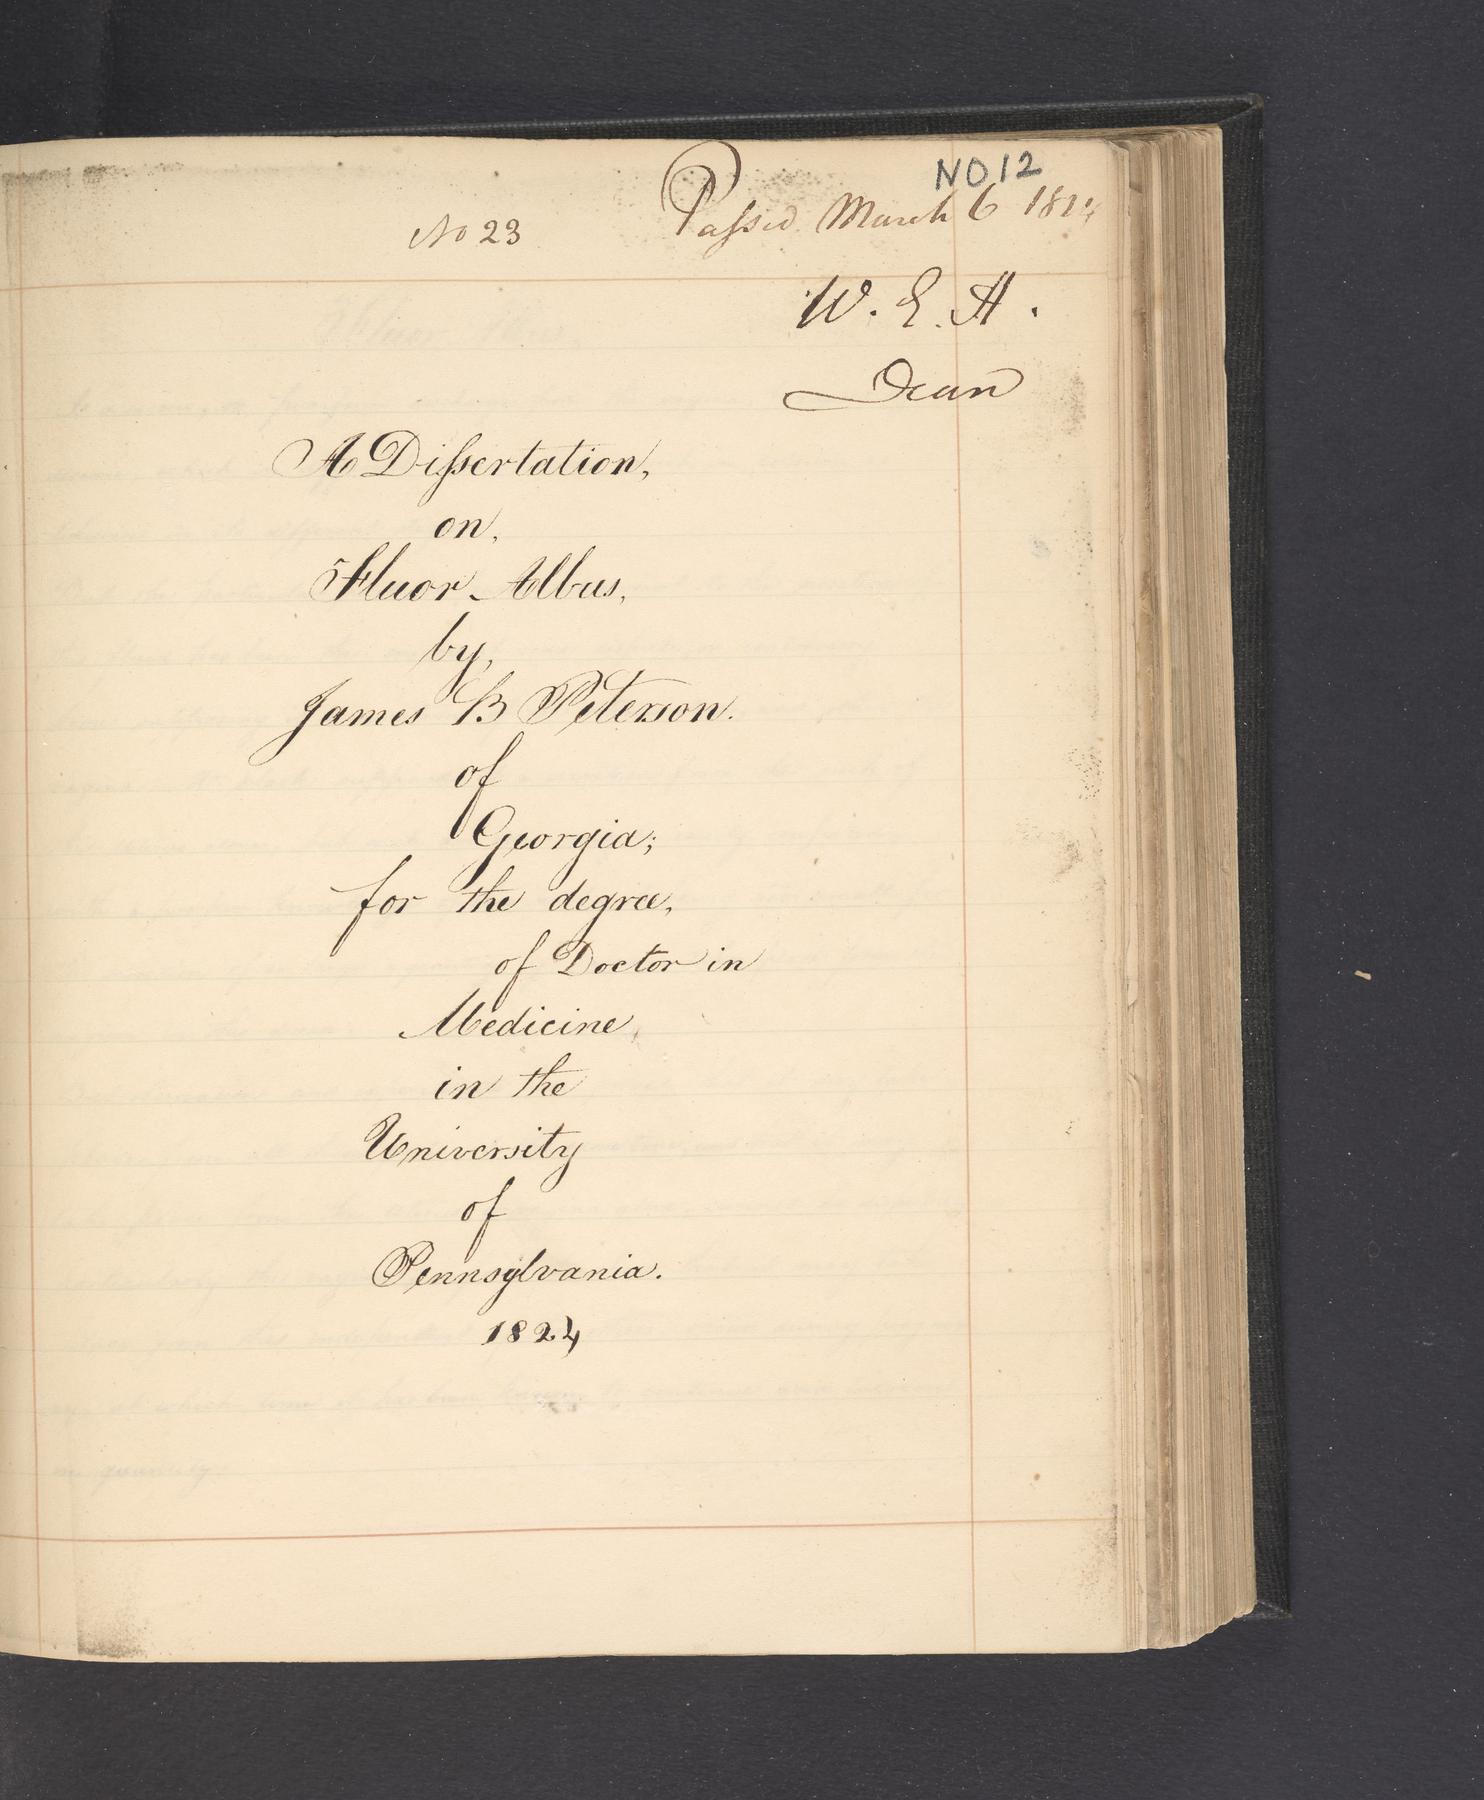 NO 12
No 23
Passed March 6 1824
W. E. H.
Dean
A Dissertation,
on,
Fluor Albus,
by,
James B Peterson.
of
Georgia;
for the degree,
of Doctor in
Medicine,
in the
University
of
Pennsylvania.
1824